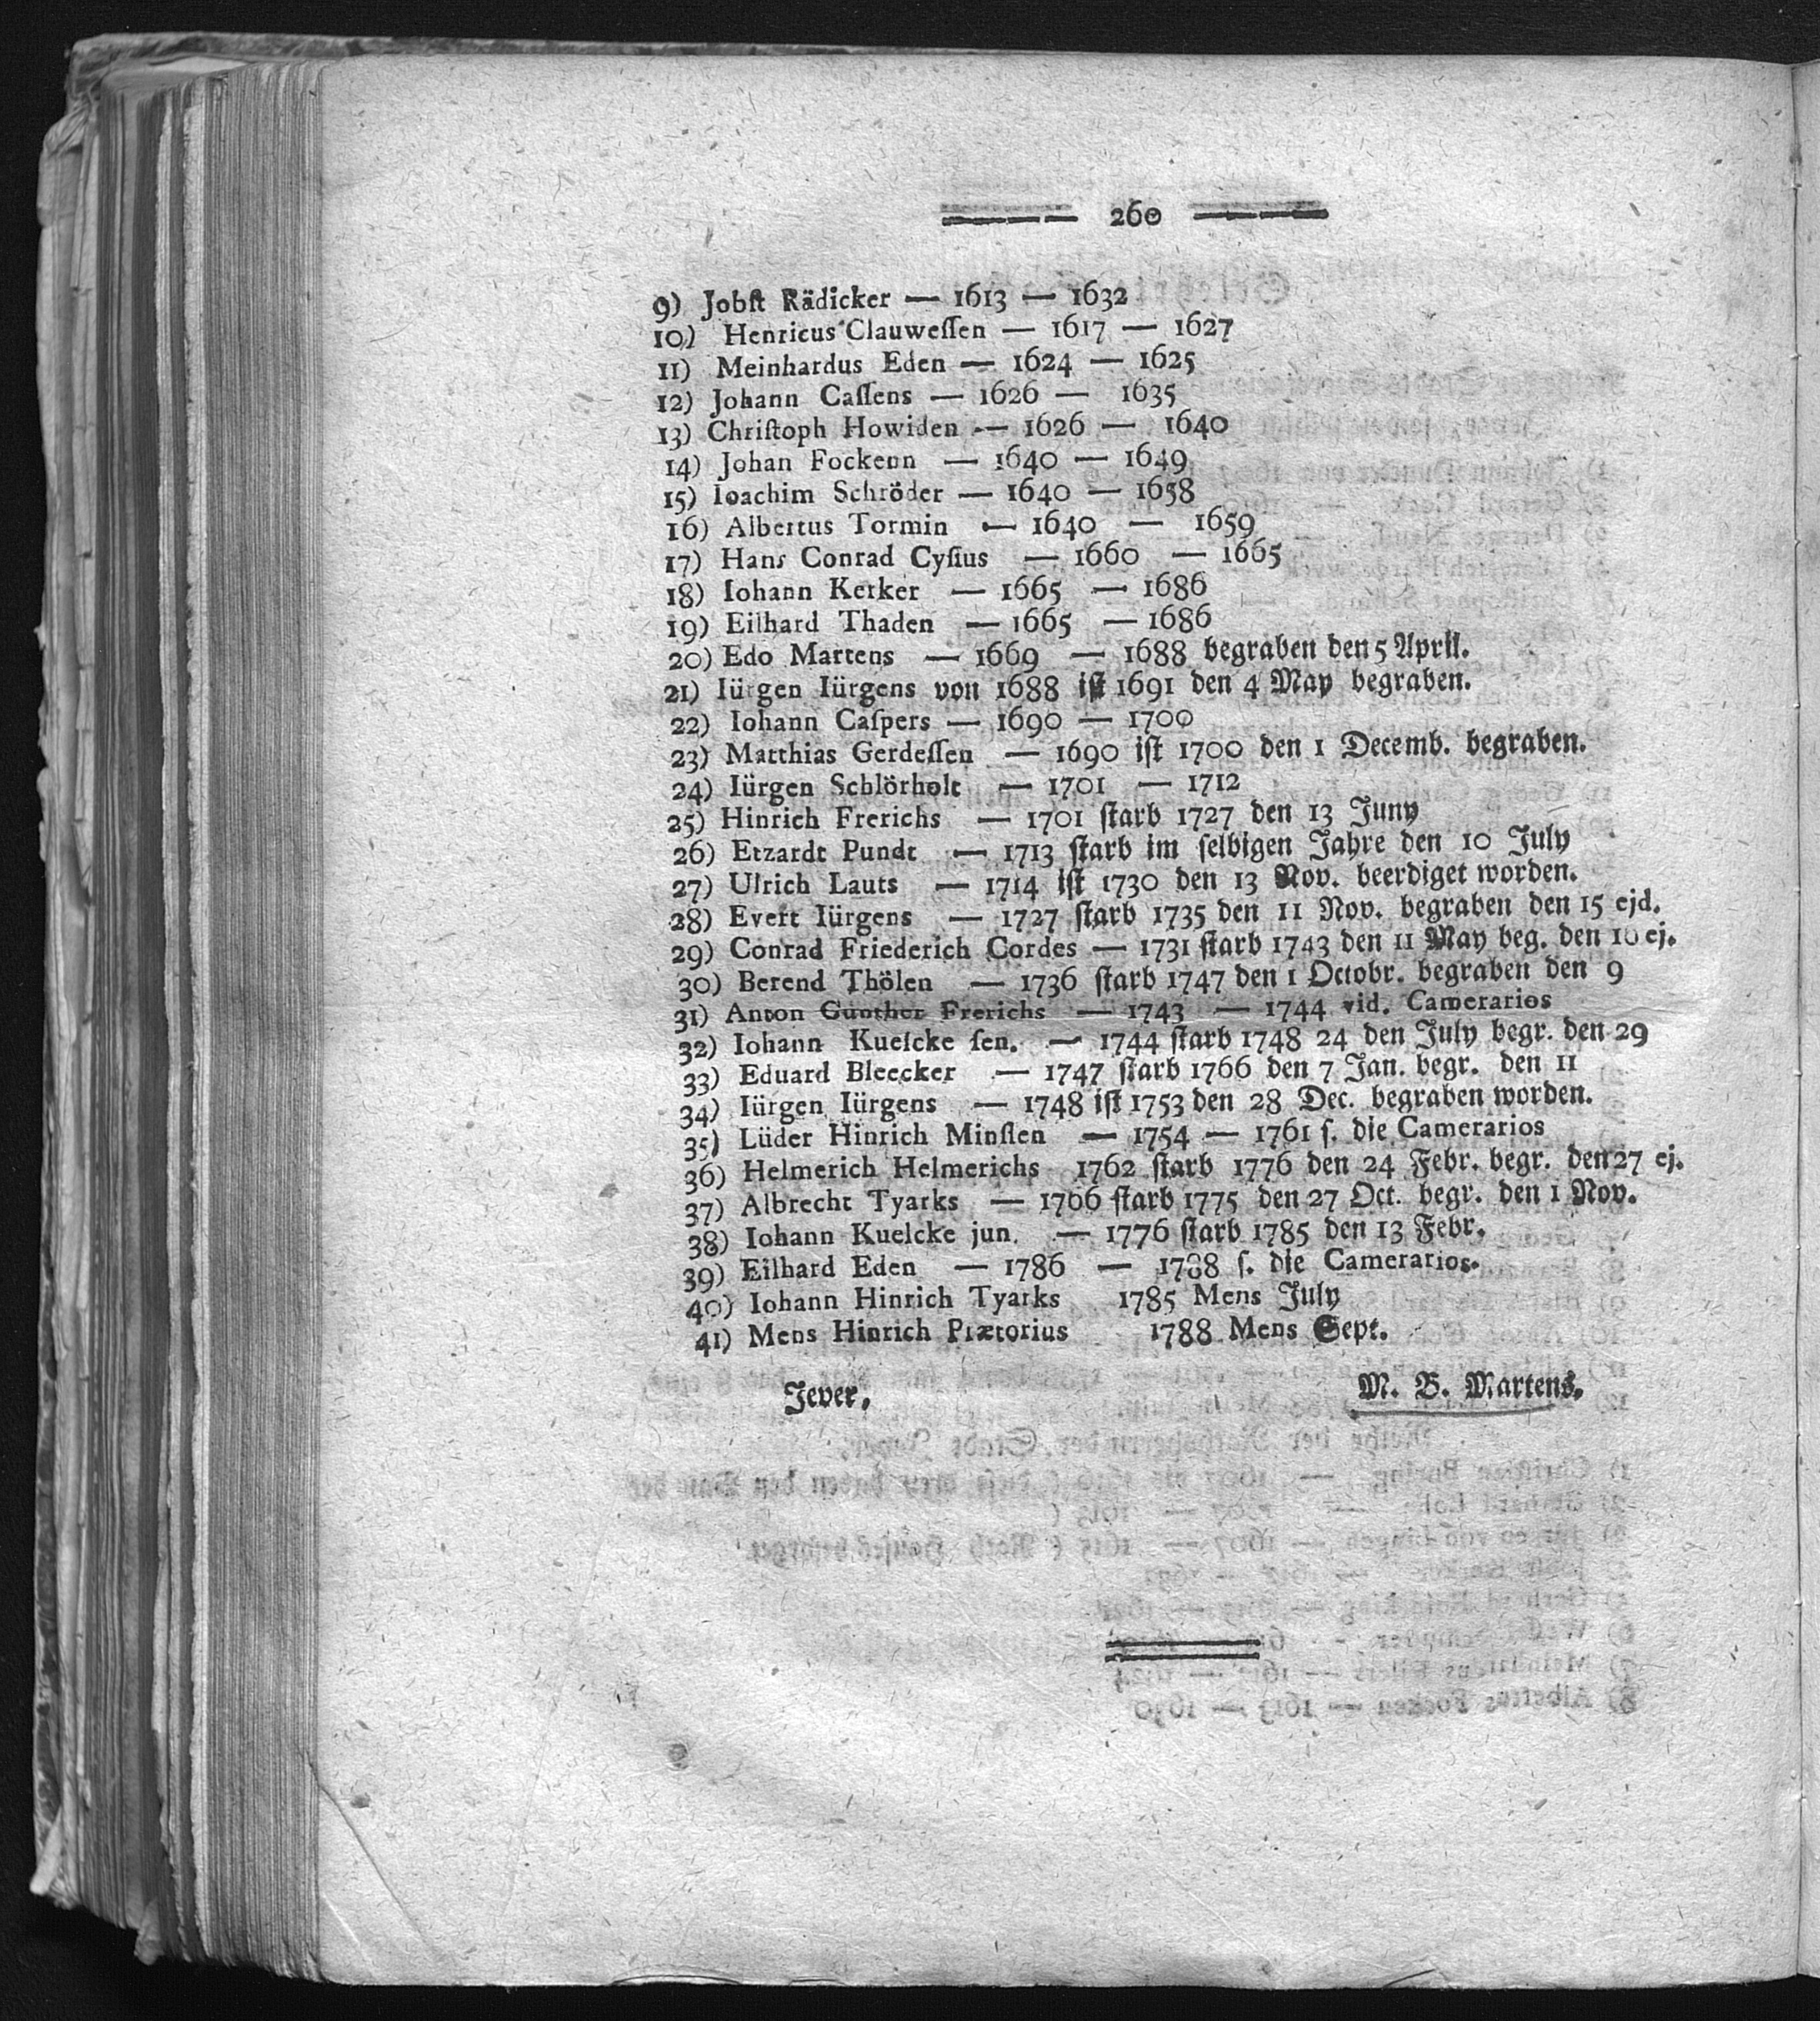 260
9) Jobſt Rädicker — 1613 — 1632
10) Henricus Clauweſſen — 1617 — 1627
11) Meinhardus Eden — 1624 — 1625
12) Johann Caſſens — 1626 — 1635
13) Chriſtoph Howiden — 1626 — 1640
14) Johan Fockenn — 1640 — 1649
15) Ioachim Schröder — 1640 — 1658
16) Albertus Tormin — 1640 — 1659
17) Hans Conrad Cyſius — 1660 — 1665
18) Iohann Kerker — 1665 — 1686
19) Eilhard Thaden — 1665 — 1686
20) Edo Martens — 1669 — 1688 begraben den 5 April.
21) Iürgen Iürgens von 1688 iſt 1691 den 4 May begraben.
22) Iohann Caſpers — 1690 — 1700
23) Matthias Gerdeſſen — 1690 iſt 1700 den 1 Decemb. begraben.
24) Iürgen Schlörholt — 1701 — 1712
25) Hinrich Frerichs — 1701 ſtarb 1727 den 13 Juny
26) Etzardt Pundt — 1713 ſtarb im ſelbigen Jahre den 10 July
27) Ulrich Lauts — 1714 iſt 1730 den 13 Nov. beerdiget worden.
28) Evert Iürgens — 1727 ſtarb 1735 den 11 Nov. begraben den 15 ejd.
29) Conrad Friederich Cordes — 1731 ſtarb 1743 den 11 May beg. den 16 ej.
30) Berend Thölen — 1736 ſtarb 1747 den 1 Octobr. begraben den 9
31) Anton Günther Frerichs — 1743 — 1744 vid. Camerarios
32) Iohann Kuelcke ſen. — 1744 ſtarb 1748 24 den July begr. den 29
33) Eduard Bleecker — 1747 ſtarb 1766 den 7 Jan. begr. den 11
34) Iürgen Iürgens — 1748 iſt 1753 den 28 Dec. begraben worden.
35) Lüder Hinrich Minſſen — 1754 — 1761 ſ. die Camerarios
36) Helmerich Helmerichs 1762 ſtarb 1776 den 24 Febr. begr. den 27 ej.
37) Albrecht Tyarks — 1766 ſtarb 1775 den 27 Oct. begr. den 1 Nov.
38) Iohann Kuelcke jun. — 1776 ſtarb 1785 den 13 Febr.
39) Eilhard Eden — 1786 — 1788 ſ. die Camerarios.
40) Iohann Hinrich Tyarks 1785 Mens July
41) Mens Hinrich Prætorius 1788 Mens Sept.
Jever, M. B. Martens.